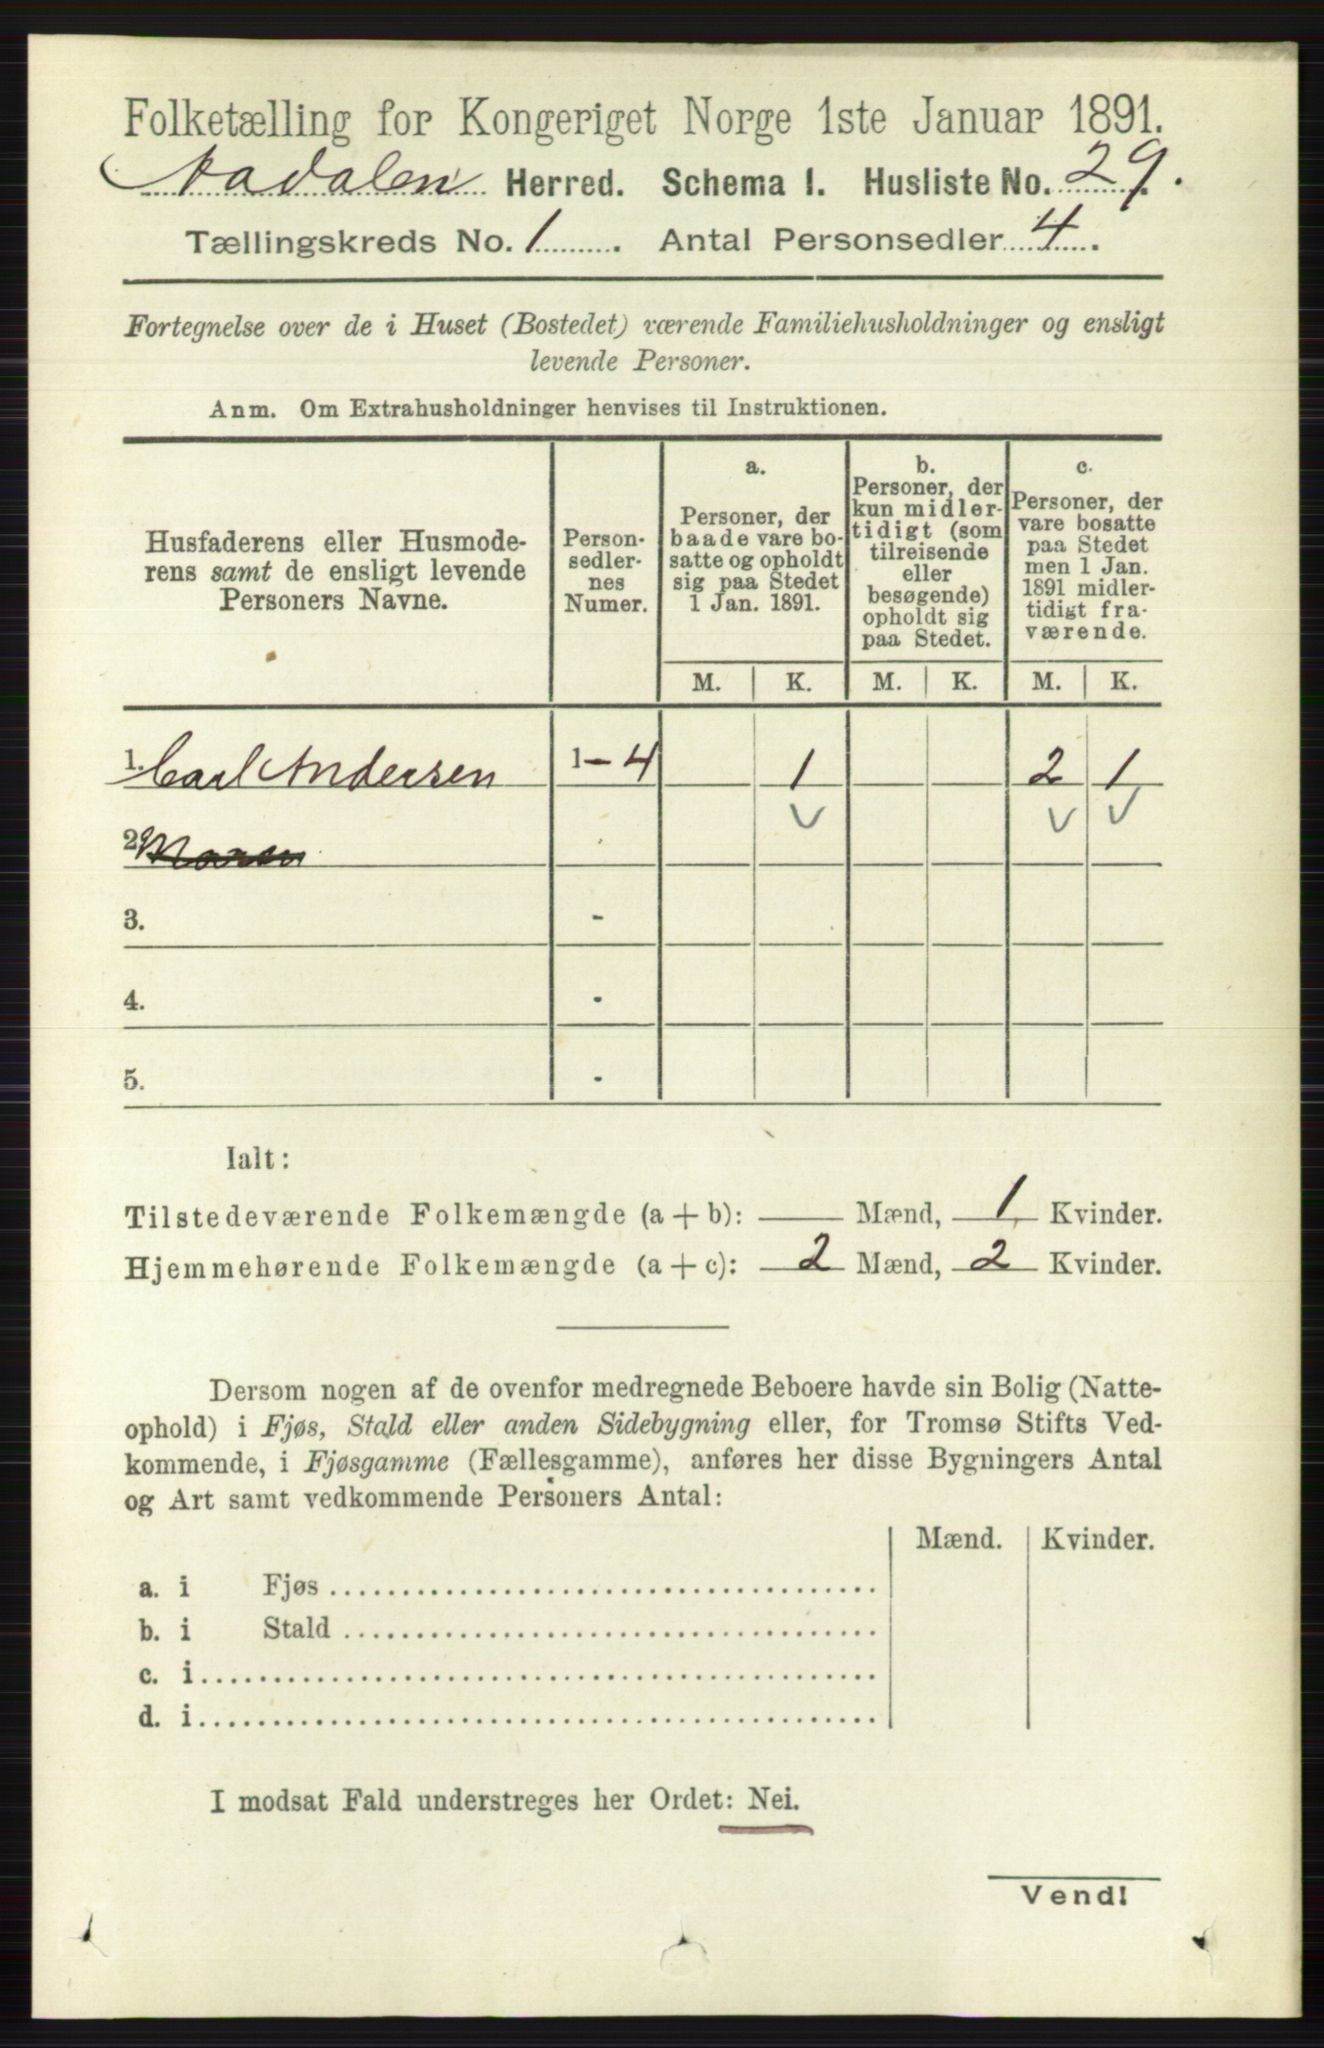 Folketælling for Kongeriget Norge 1ste Januar 1891.
Aadalen Herred. Schema I. Husliste No. 29.
Tællingskreds No. 1. Antal Personsedler 4.
Fortegnelse over de i Huset (Bostedet) værende Familiehusholdninger og ensligt
levende Personer.
Anm. Om Extrahusholdninger henvises til Instruktionen.
Husfaderens eller Husmode-
rens samt de ensligt levende
Personers Navne.
Person-
sedler-
nes
Numer.
a.
Personer, der
baade vare bo-
satte og opholdt
sig paa Stedet
1 Jan. 1891.
b.
Personer, der
kun midler-
tidigt (som
tilreisende
eller
besøgende)
opholdt sig
paa Stedet.
c.
Personer, der
vare bosatte
paa Stedet
men 1 Jan.
1891 midler-
tidigt fra-
værende.
M. K. M. K. M. K.
1. Carl Andersen 1-4 1 2 1
2. Maren
3. -
4. -
5. -
Ialt:
Tilstedeværende Folkemængde (a + b): — Mænd, 1 Kvinder.
Hjemmehørende Folkemængde (a + c): 2 Mænd, 2 Kvinder.
Dersom nogen af de ovenfor medregnede Beboere havde sin Bolig (Natte-
ophold) i Fjøs, Stald eller anden Sidebygning eller, for Tromsø Stifts Ved-
kommende, i Fjøsgamme (Fællesgamme), anføres her disse Bygningers Antal
og Art samt vedkommende Personers Antal:
Mænd. Kvinder.
a. i Fjøs
b. i Stald
c. i
d. i
I modsat Fald understreges her Ordet: Nei.
Vend!